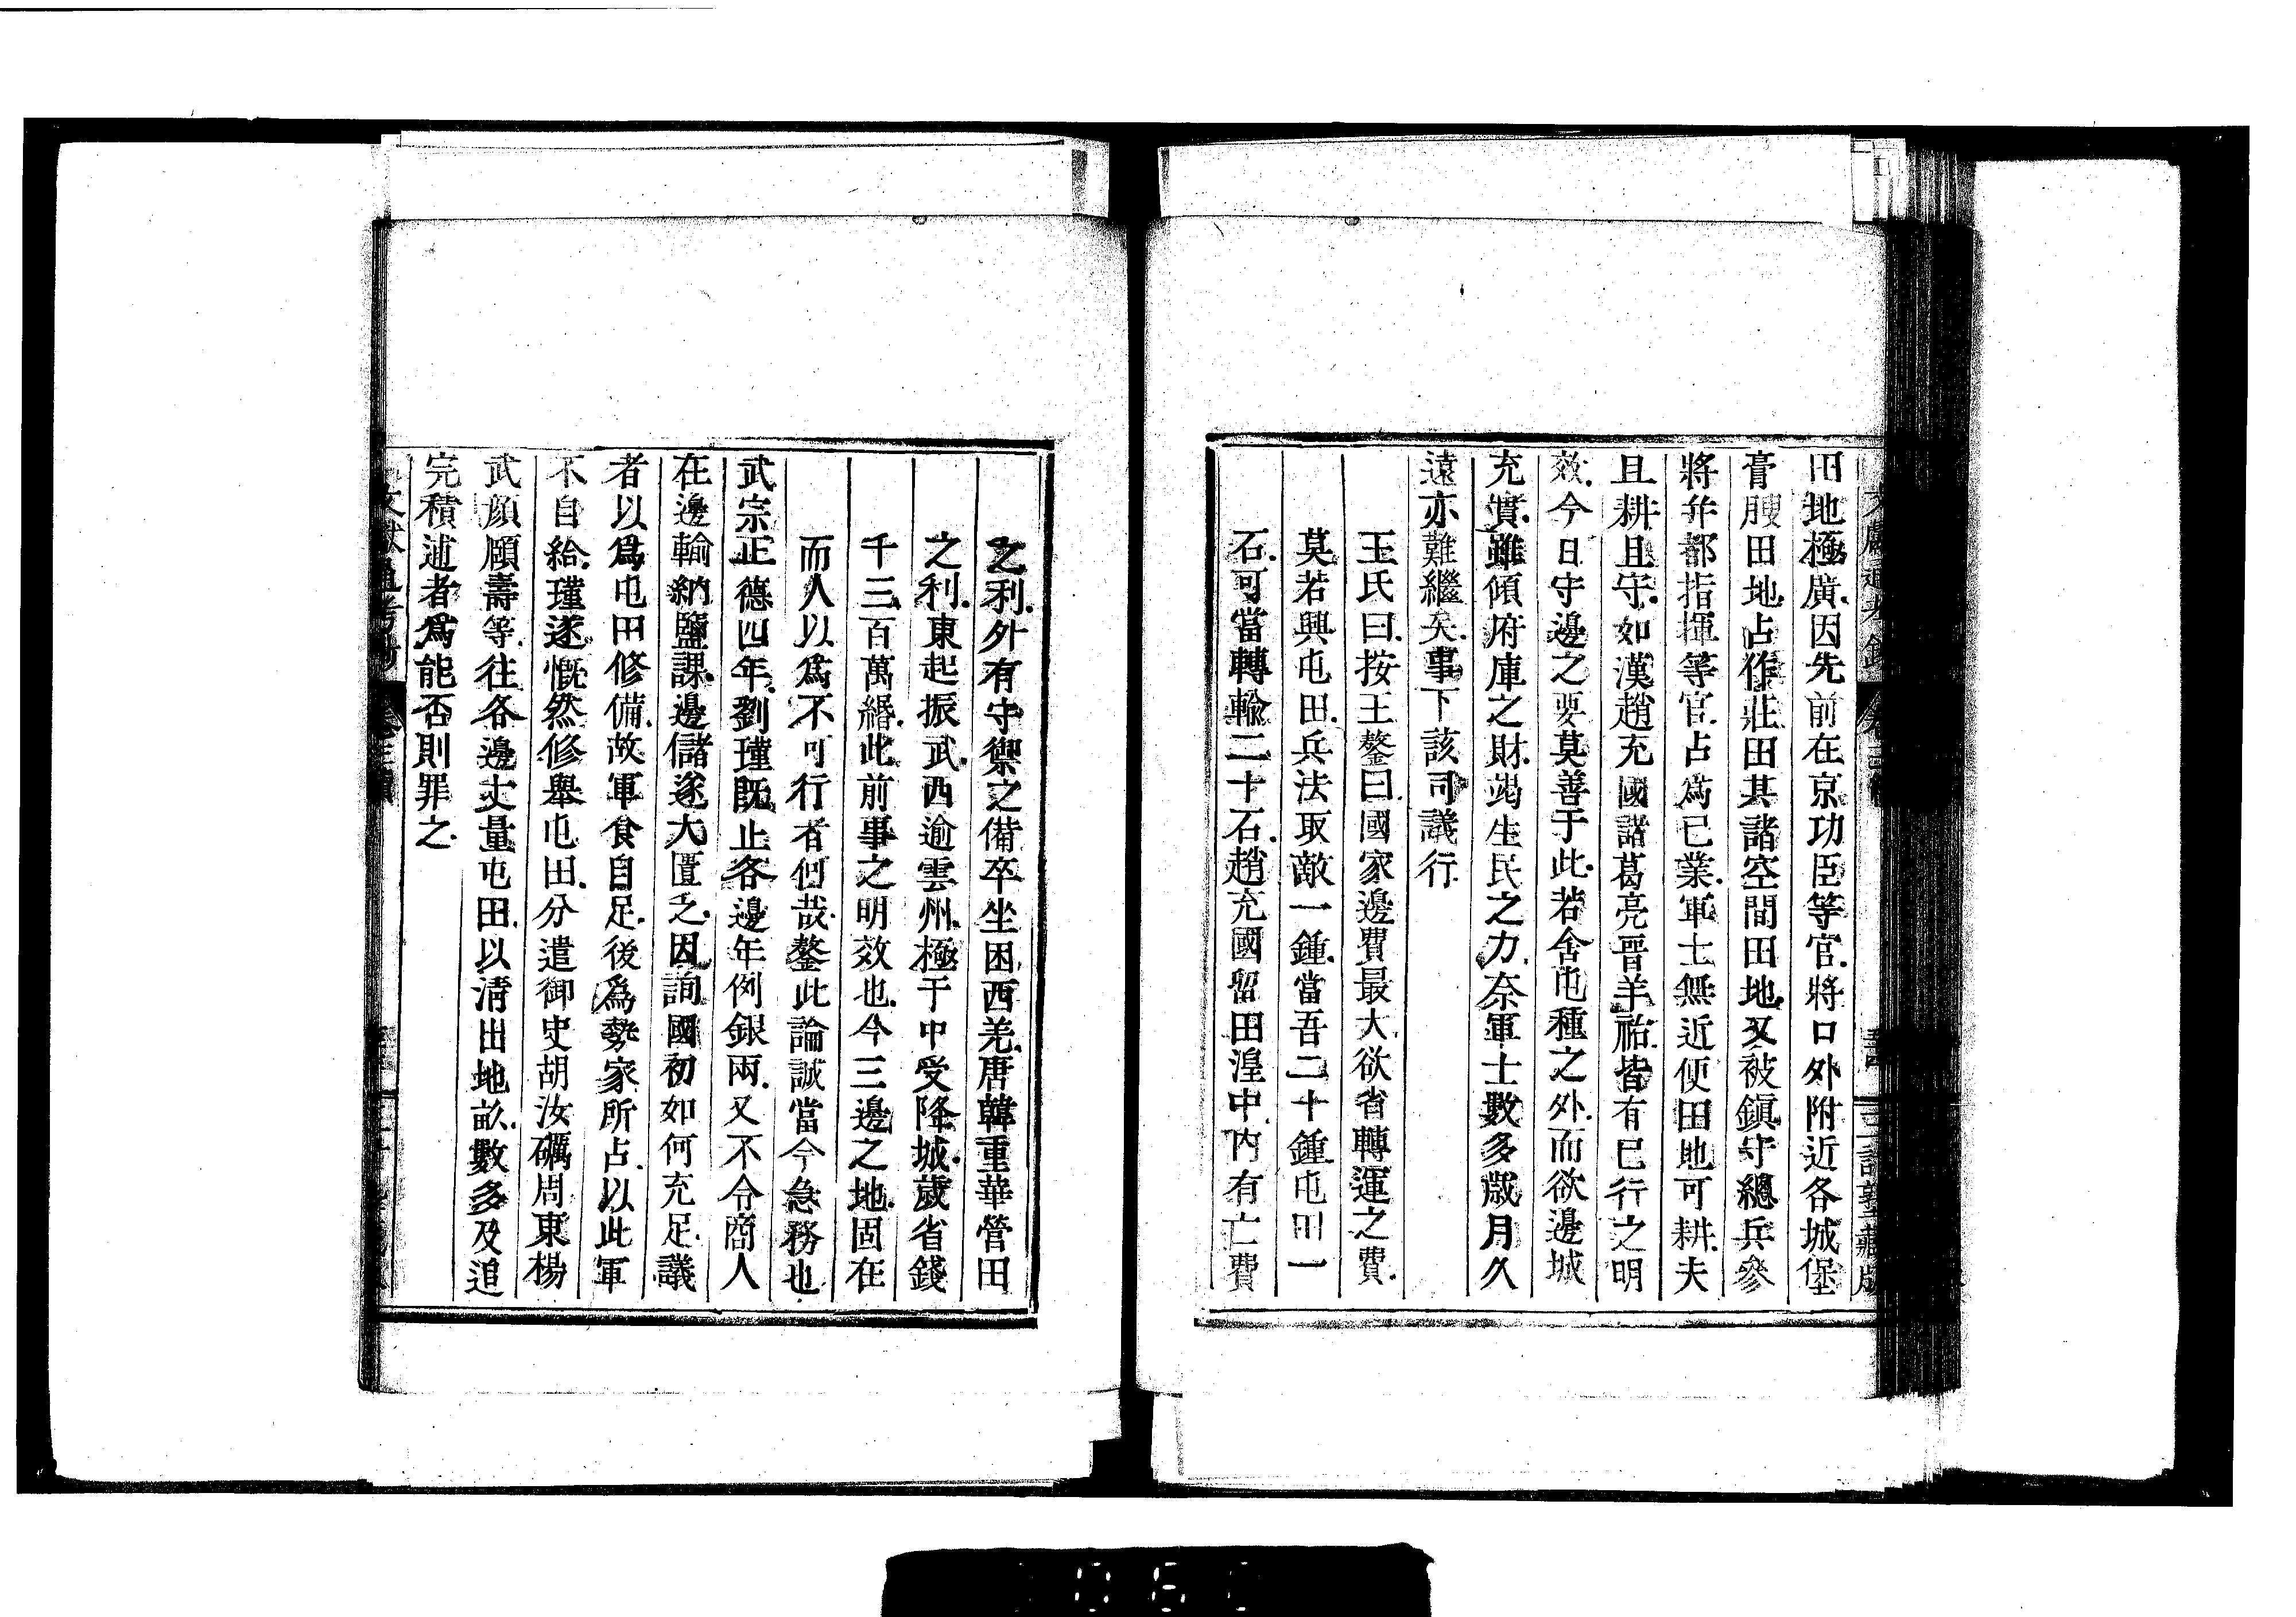 田地極廣因先前在京功臣等官將口外附近各城堡
膏腴田地占作莊田其諸空間田地又被鎮守總兵參
將并都指揮等官占爲已業軍士無近便田地可耕夫
且耕且守如漢趙充國諸葛亮晉羊祜皆有已行之明
效今日守邊之要莫善于此若舍屯種之外而欲邊城
充實雖傾府庫之財竭生民之力奈軍士數多歲月久
遠亦難繼矣事下該司議行
王氏曰按王鏊曰國家邊費最大欲省轉運之費
莫若興屯田兵法取敵一鍾當吾二十鍾屯田一
石可當轉輸二十石趙充國留田湟中内有亡費
之利外有守禦之備卒坐困西羌唐韓重華營田
之利東起振武西逾雲州極于中受降城歲省錢
千三百萬緡此前事之明效也今三邊之地固在
而人以爲不可行者何哉鏊此論誠當今急務也
武宗正德四年劉瑾既止各邊年例銀兩又不令商人
在邊輸納鹽課邊儲遂大匱乏因詢國初如何充足議
者以爲屯田修備故軍食自足後爲勢家所占以此軍
不自給瑾遂慨然修舉屯田分遣御史胡汝礪周東楊
武顔頤壽等往各邊丈量屯田以清出地畝數多及追
完積逋者爲能否則罪之